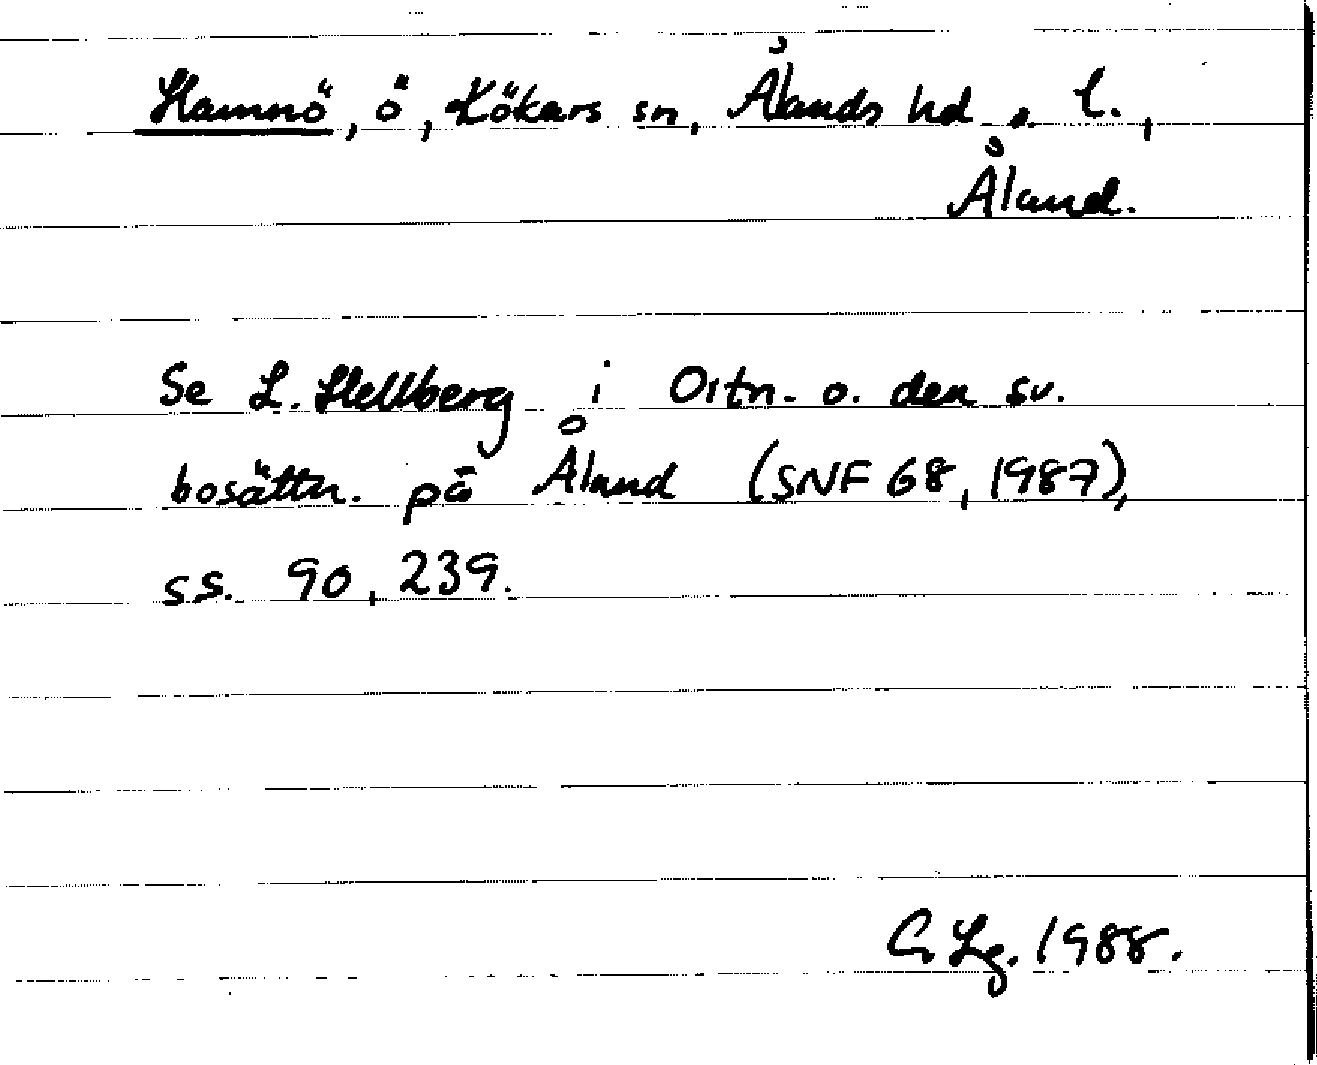 Hamnö, ö, Kökars sn, Ålands hd o. l.,
Åland.
Se L. Hellberg i Ortn. o. den sv.
bosättn. på Åland (SNF 68, 1987),
ss. 90, 239.
G. Lg. 1988.